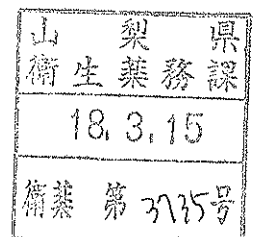 山梨県
衛生薬務課
18.3.15
衛薬 第3735号